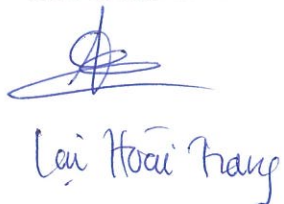 Lại Hoài Trang